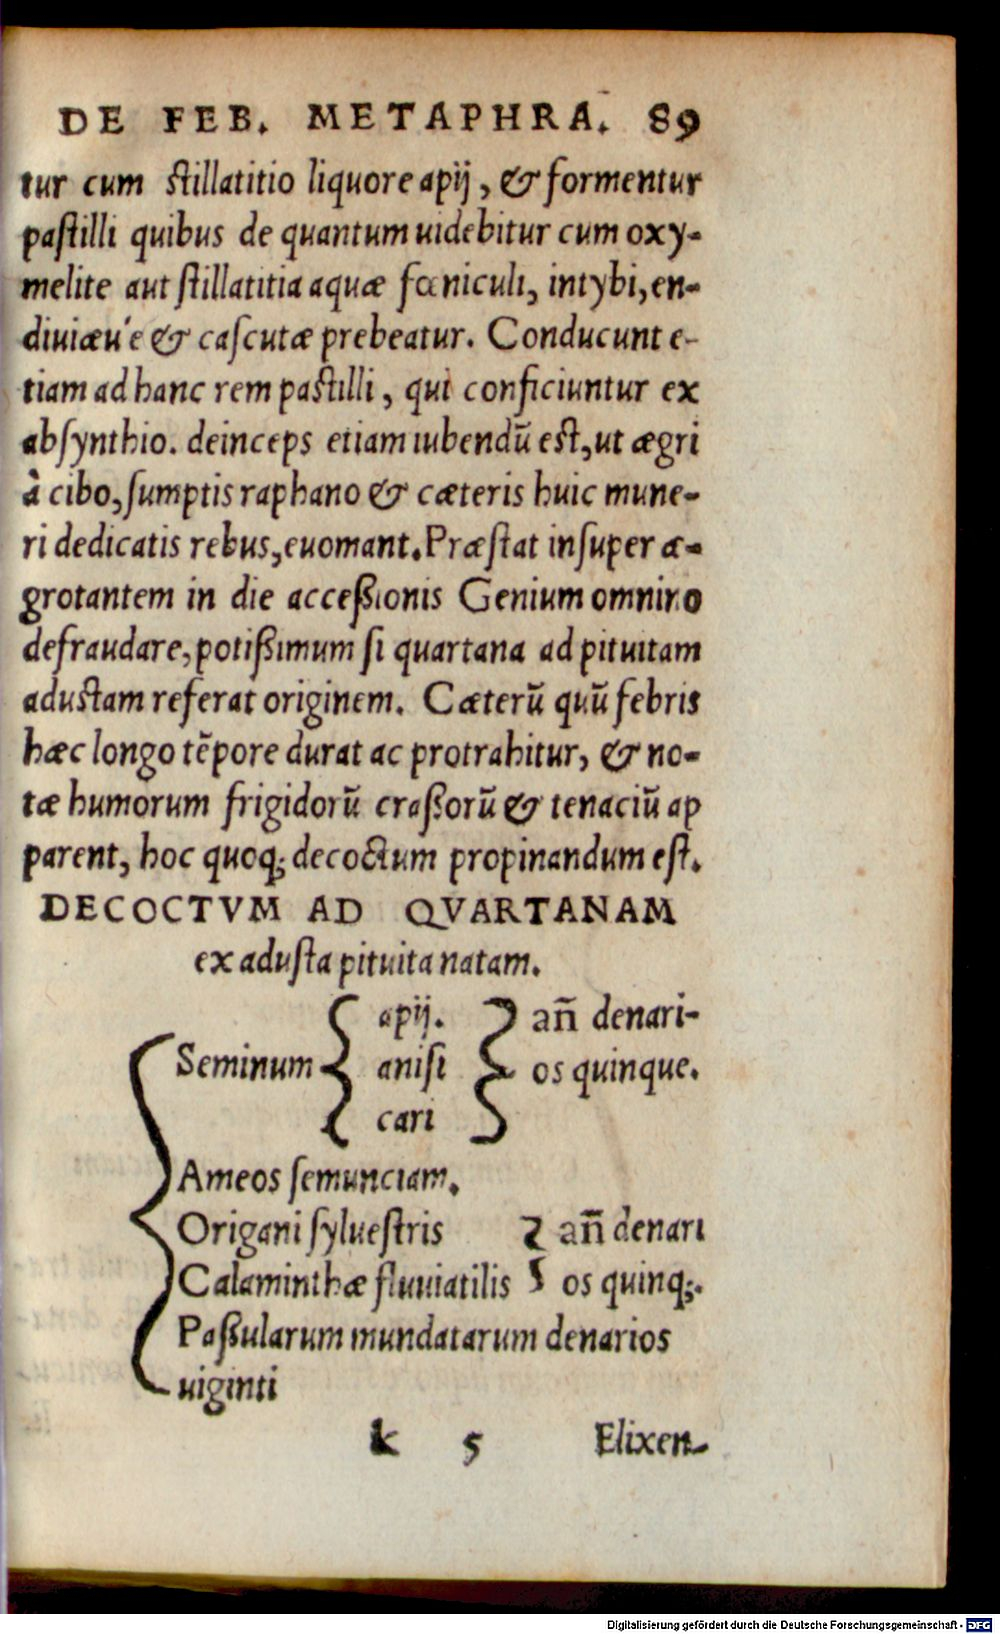 DE FEB. METAPHRA. 89
tur cum stillatitio liquore apij, & formentur
pastilli quibus de quantum uidebitur cum oxy-
melite aut stillatitia aquæ fœniculi, intybi, en-
diuiæu'e & cascutæ prebeatur. Conducunt e-
tiam ad hanc rem pastilli, qui conficiuntur ex
absynthio. deinceps etiam iubendū est, ut ægri
à cibo, sumptis raphano & cæteris huic mune-
ri dedicatis rebus, euomant. Præstat insuper æ-
grotantem in die acceßionis Genium omnino
defraudare, potißimum si quartana ad pituitam
adustam referat originem. Cæterū quū febris
hæc longo tēpore durat ac protrahitur, & no-
tæ humorum frigidorū craßorū & tenaciū ap
parent, hoc quoq; decoctum propinandum est.
DECOCTVM AD QVARTANAM
ex adusta pituita natam.
Seminum { apij. anisi cari } an̄ denari-
os quinque.
Ameos semunciam.
Origani syluestris } an̄ denari
Calaminthæ fluuiatilis os quinq;.
Paßularum mundatarum denarios
uiginti
k 5 Elixen-
Digitalisierung gefördert durch die Deutsche Forschungsgemeinschaft - DFG